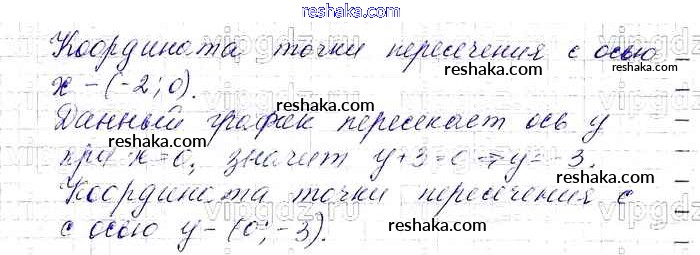 reshaka.com
Координата точки пересечения с осью
x – (-2; 0).
Данный график пересекает ось y
при x = 0, значит y + 3 = 0 ⇒ y = -3.
Координата точки пересечения с
с осью y – (0; -3).
reshaka.com
reshaka.com
reshaka.com
reshaka.com
reshaka.com
reshaka.com
reshaka.com